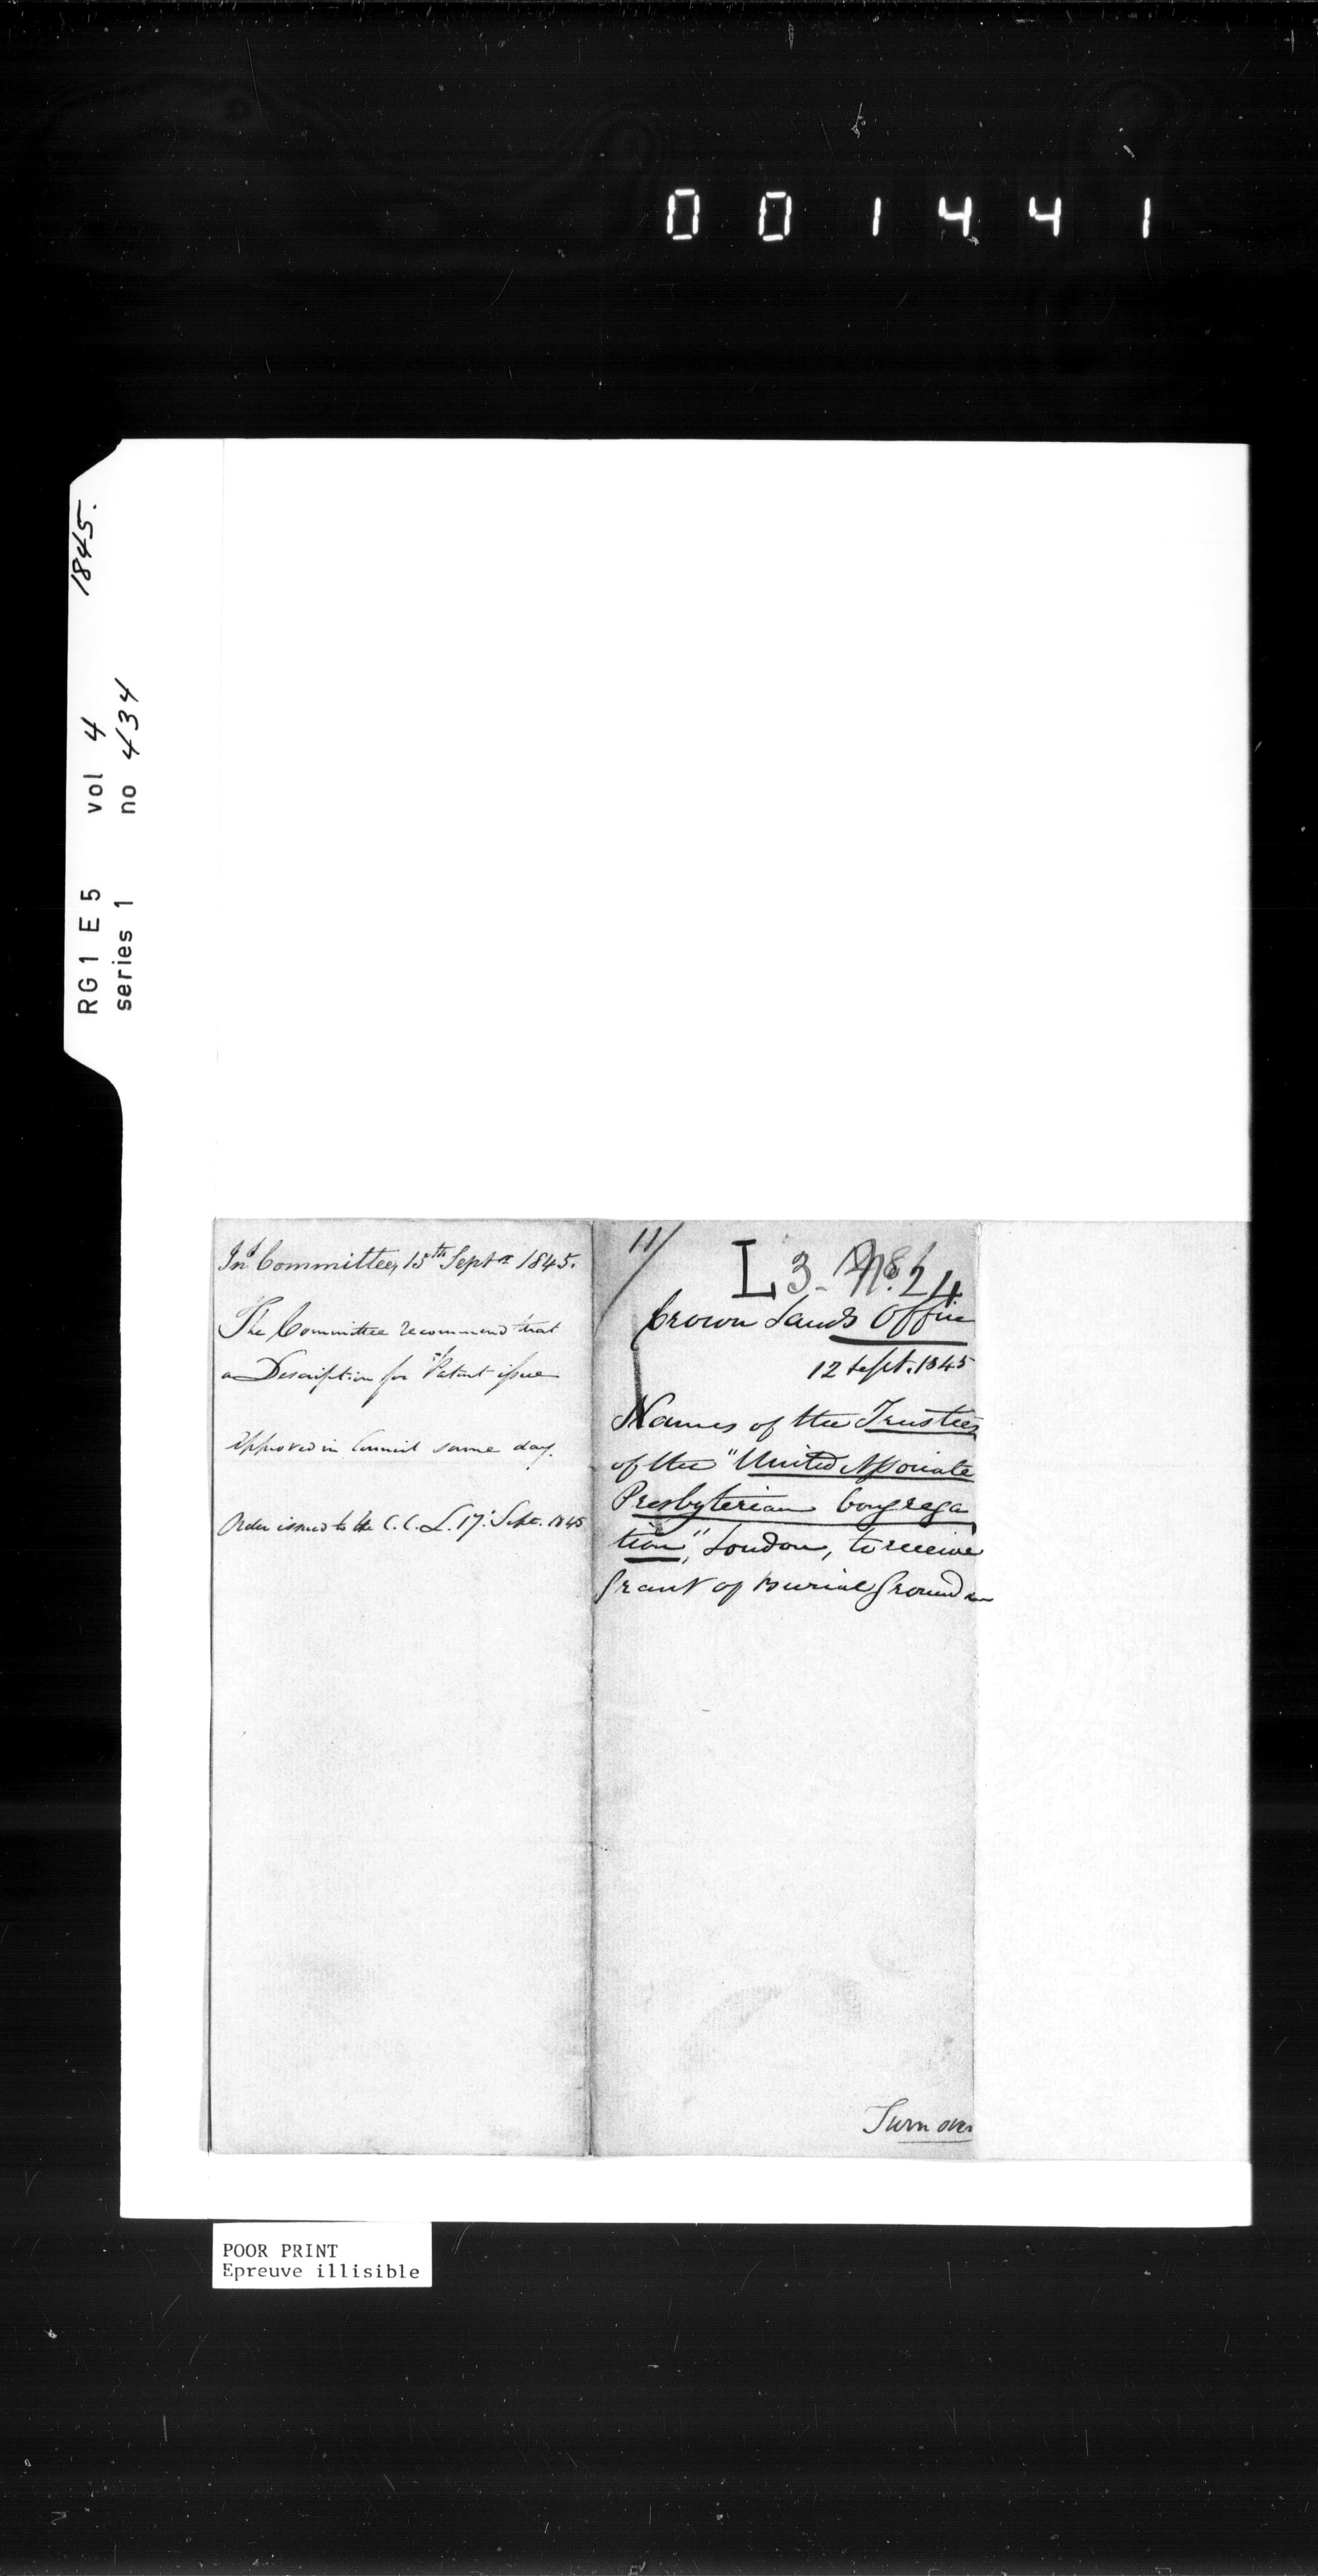 001441
1845.
RG1 E5 vol 4
series 1 no 434
In Committee, 15th Septr 1845.
The Committee recommend that
a Description for Patent issue
Approved in Council same day.
Order issued to the C. C. L. 17: Sept. 1845
11/
L 3 24
Crown Lands Office
12 Sept. 1845
Names of the Trustees
of the "United Associate
Presbyterian Congrega
tion", London, to receive
Grant of Burial Ground
Turn over
POOR PRINT
Epreuve illisible